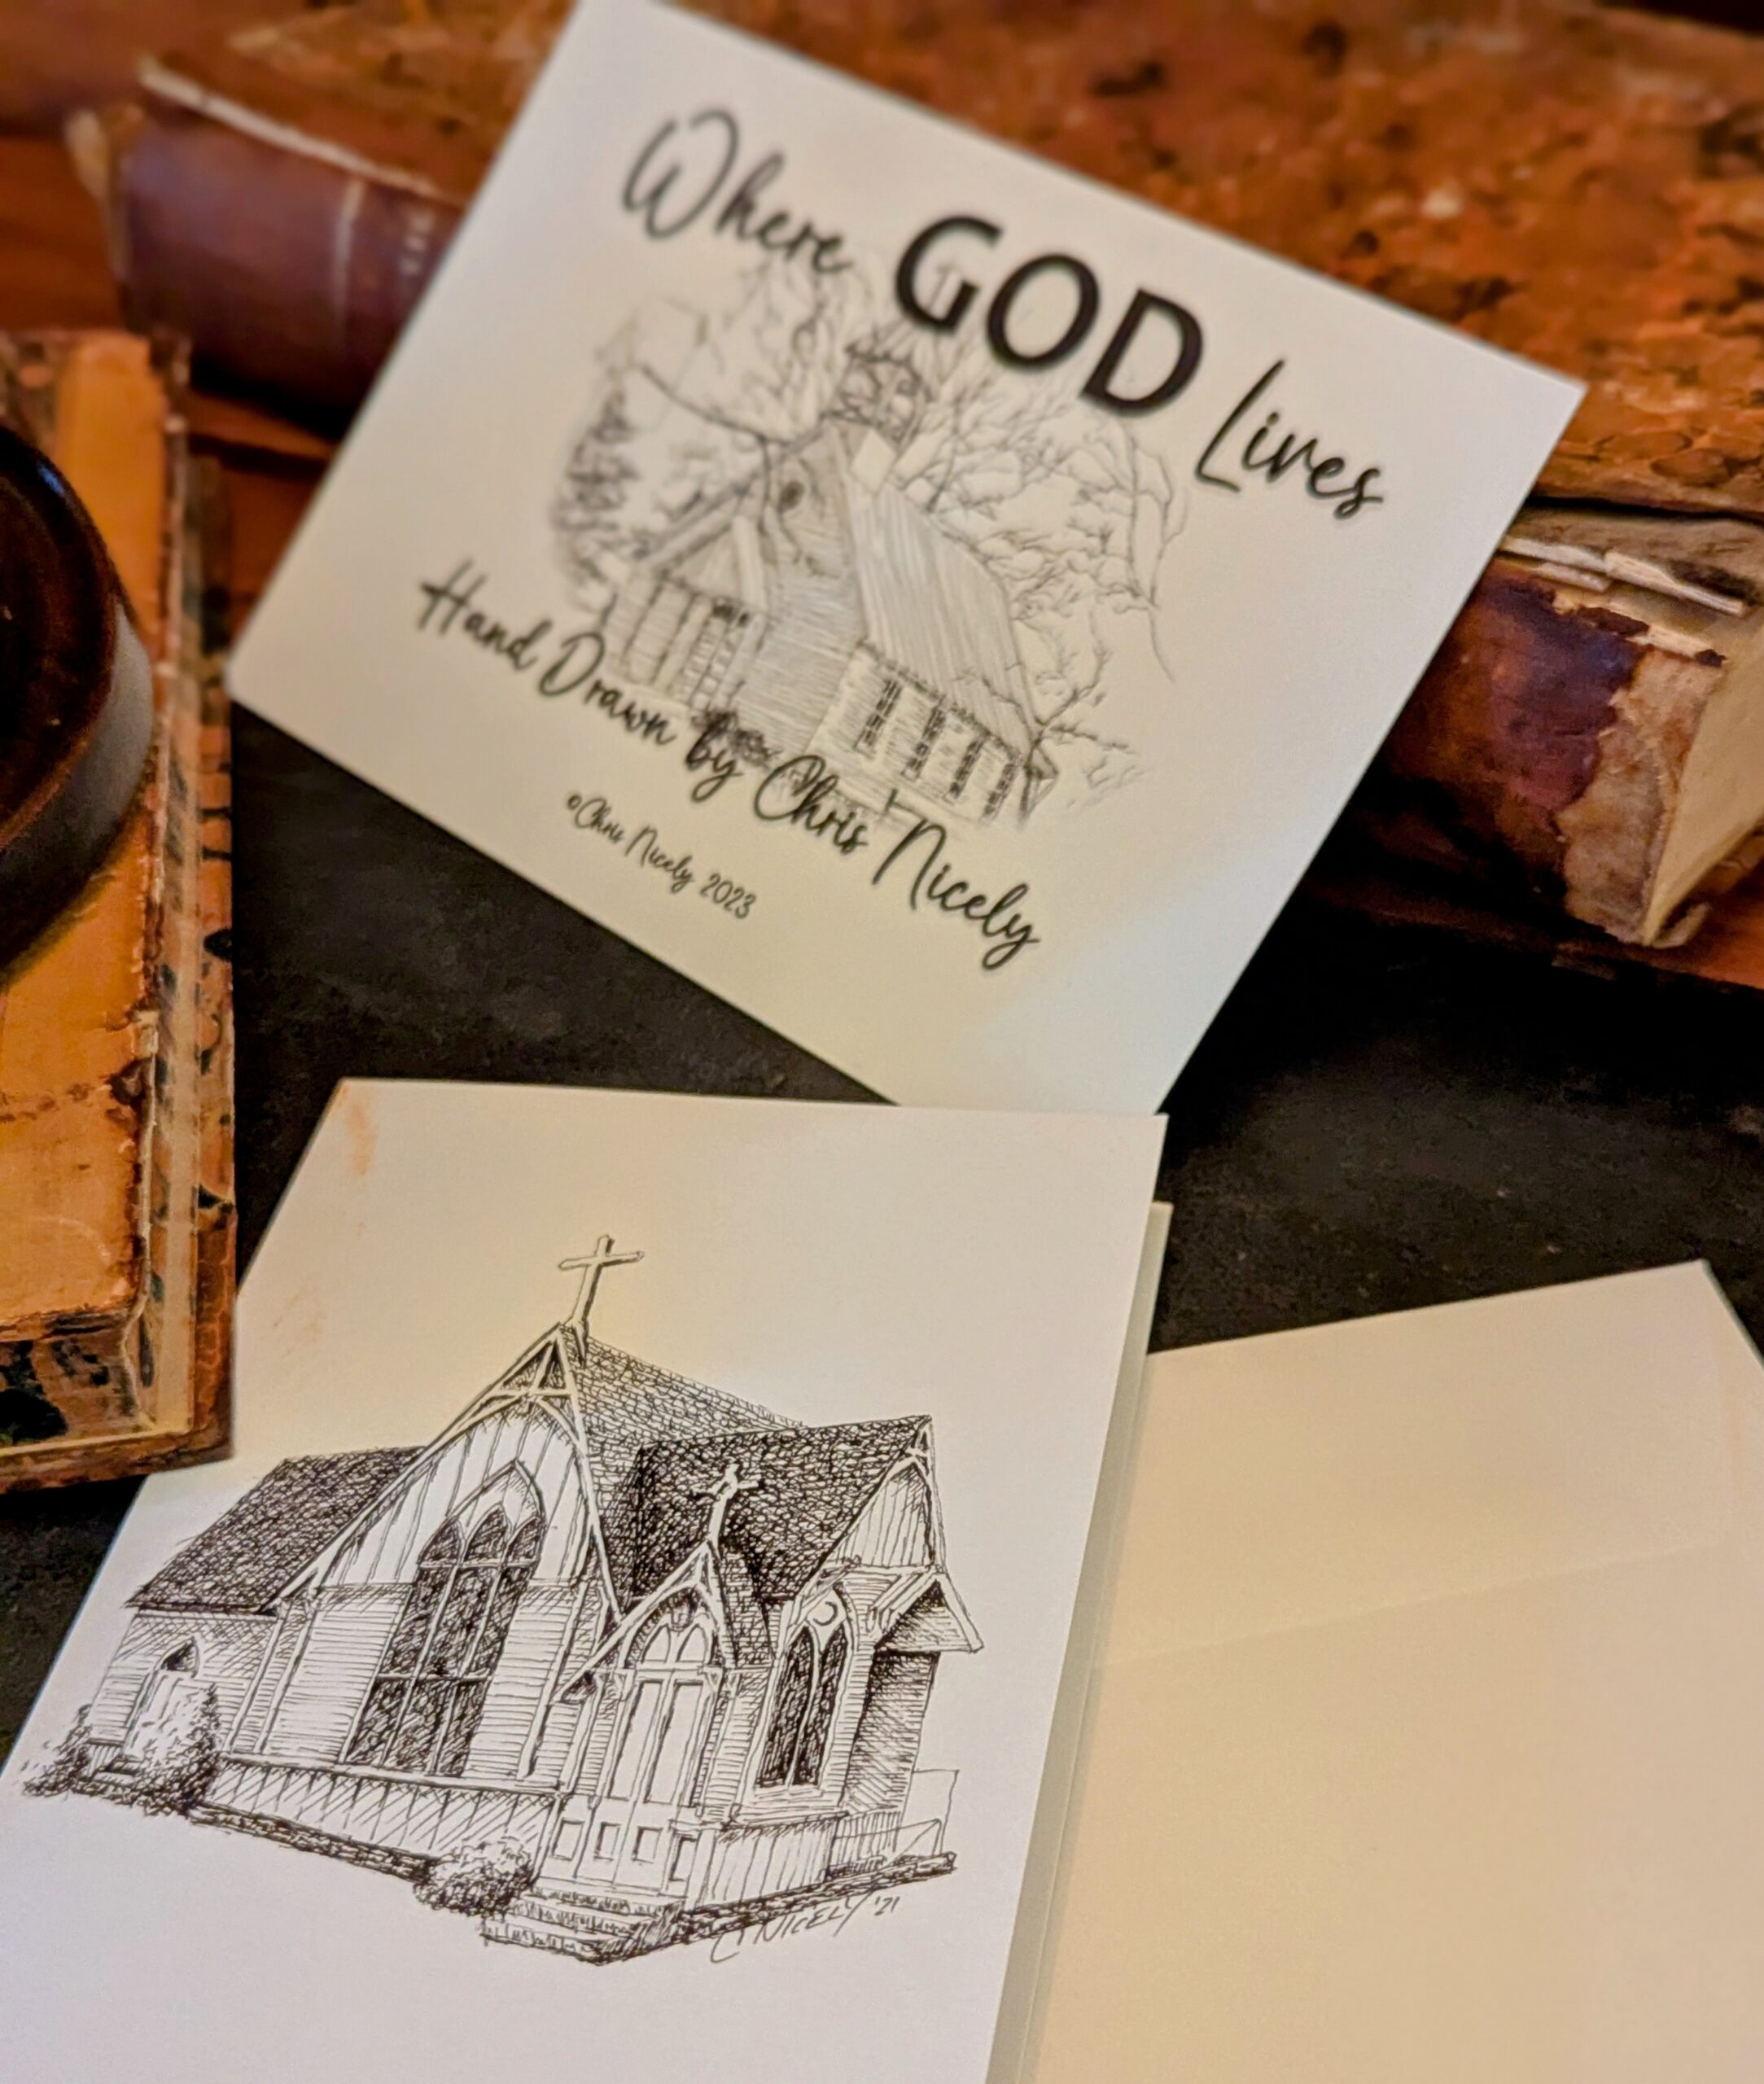 Where GOD Lives
Hand Drawn by Chris Nicely
©Chris Nicely 2023
C NICELY '21